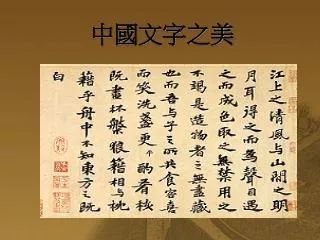 中國文字之美
江上之清風與山間之明
月耳得之而為聲目遇
之而成色取之無禁用之
不竭是造物者之無盡藏
也而吾與子之所共食客喜
而笑洗盞更酌肴核
既盡杯槃狼籍相與枕
籍乎舟中不知東方之既
白